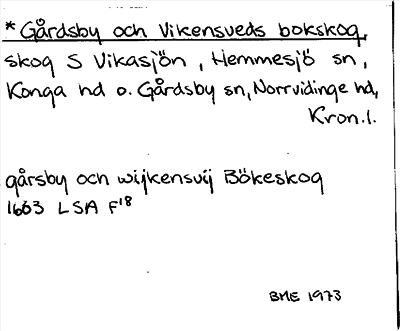 * Gårdsby och Vikensveds bokskog,
skog S Vikasjön, Hemmesjö sn,
Konga hd o. Gårdsby sn, Norrvidinge hd,
Kron.l.
gårsby och wijkensvij Bökeskog
1663 LSA F18
BME 1973